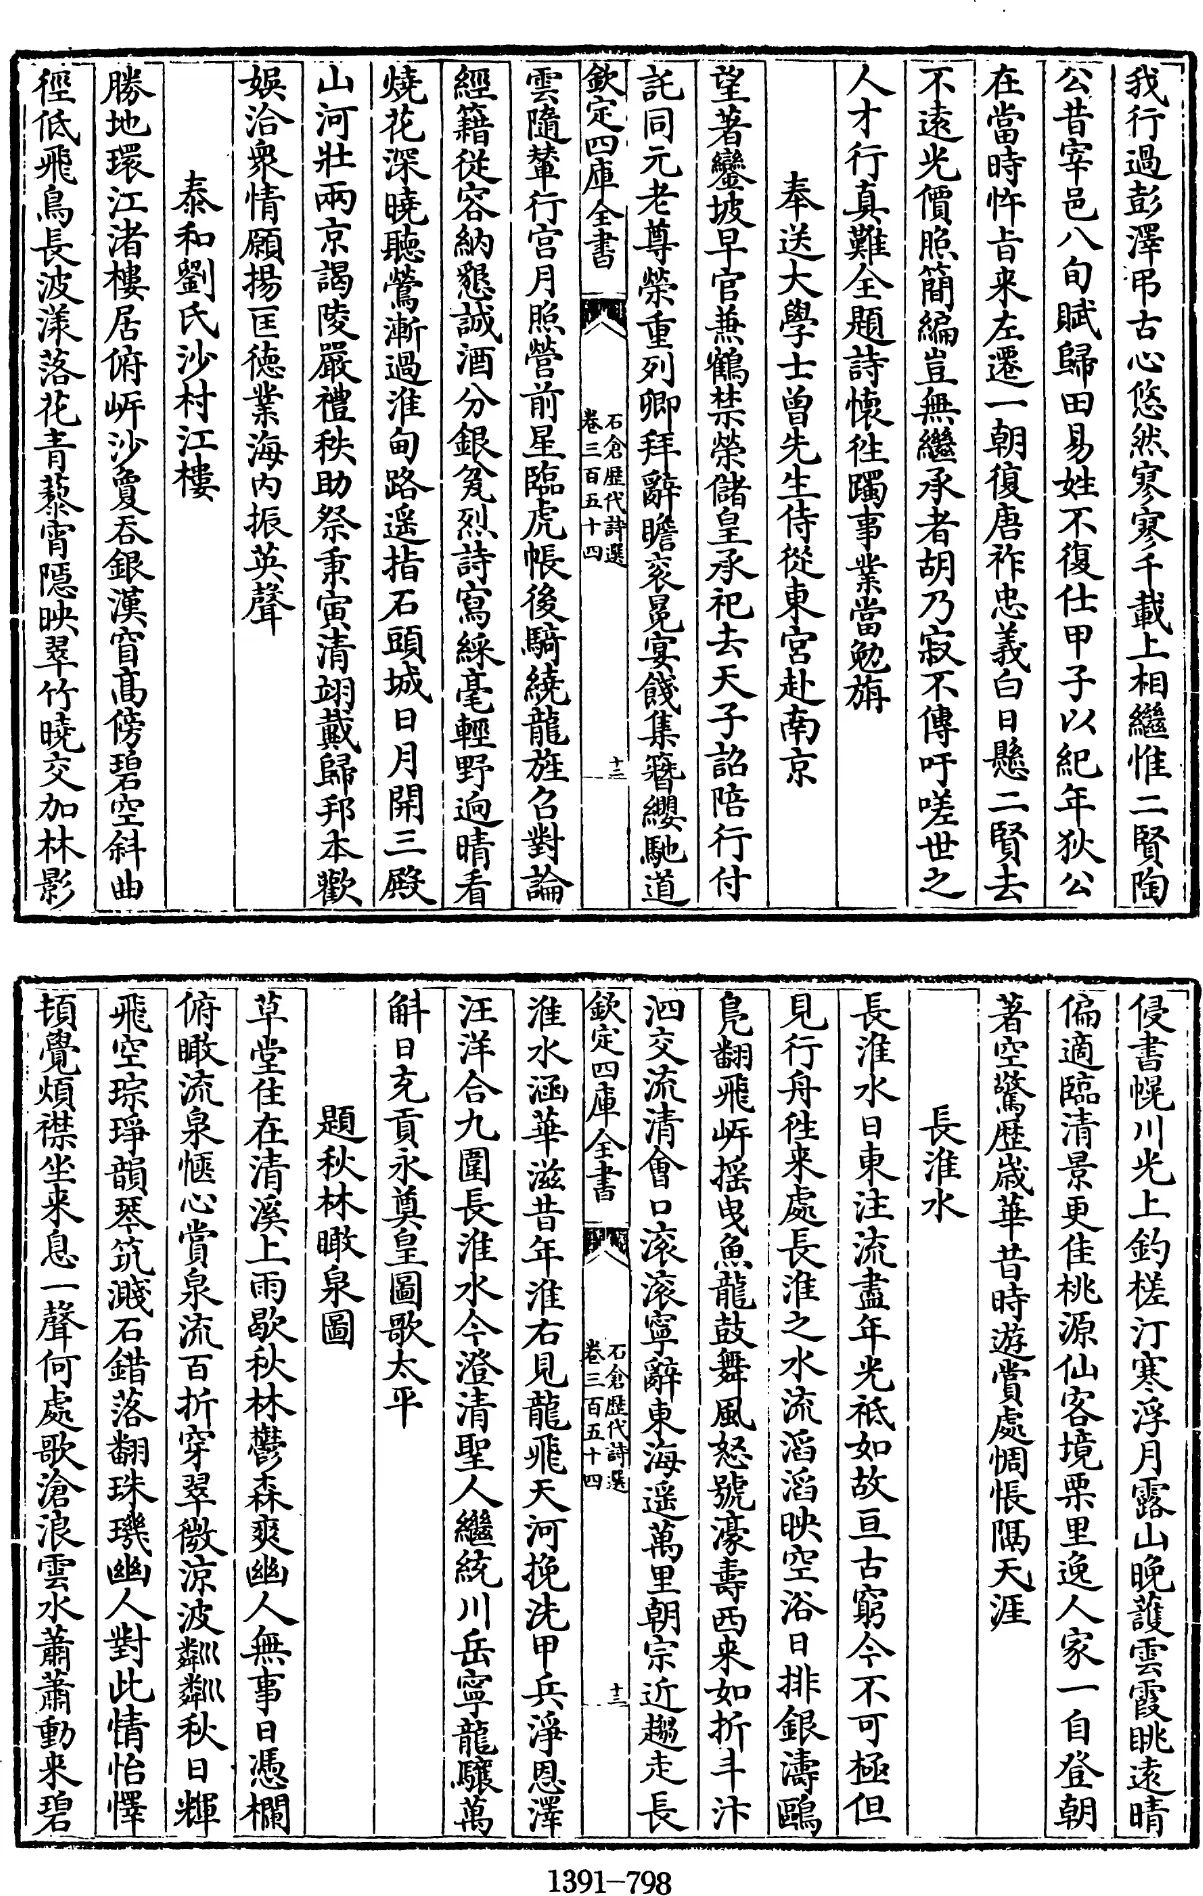 我行過彭澤弔古心悠然寥寥千載上相繼惟二賢陶
公昔宰邑八旬賦歸田易姓不復仕甲子以紀年狄公
在當時忤㫖来左遷一朝復唐祚忠義白日懸二賢去
不逺光價照簡編豈無繼承者胡乃寂不傳吁嗟世之
人才行真難全題詩懷徃躅事業當勉旃
奉送大學士曽先生侍從東宮赴南京
望著鑾坡早官兼鶴禁榮儲皇承祀去天子詔陪行付
託同元老尊榮重列卿拜辭瞻衮冕宴餞集簪纓馳道
欽定四庫全書
石倉歴代詩選
卷三百五十四
十三
雲隨輦行宫月照營前星臨虎帳後騎繞龍旌召對論
經籍從容納懇誠酒分銀甕烈詩寫綵毫輕野逈晴看
燒花深曉聽鶯漸過淮甸路遥指石頭城日月開三殿
山河壯兩京謁陵嚴禮秩助祭秉寅清翊戴歸邦本歡
娯洽衆情願揚匡徳業海内振英聲
泰和劉氏沙村江樓
勝地環江渚樓居俯㟁沙㝢吞銀漢窅髙傍碧空斜曲
徑低飛鳥長波漾落花青藜宵隠映翠竹曉交加林影
侵書幌川光上釣槎汀寒浮月露山晚護雲霞眺逺晴
偏適臨清景更佳桃源仙客境栗里逸人家一自登朝
著空驚歴嵗華昔時遊賞處惆悵隔天涯
長淮水
長淮水日東注流盡年光祗如故亘古窮今不可極但
見行舟徃来處長淮之水流滔滔映空浴日排銀濤鷗
鳬翻飛㟁揺曳魚龍鼓舞風怒號濠壽西来如折斗汴
泗交流清㑹口滚滚寧辭東海遥萬里朝宗近趨走長
欽定四庫全書
石倉歴代詩選
卷三百五十四
十三
淮水涵華滋昔年淮右見龍飛天河挽洗甲兵淨恩澤
汪洋合九圍長淮水今澄清聖人繼統川岳寧龍驤萬
斛日充貢永奠皇圖歌太平
題秋林瞰泉圖
草堂住在清溪上雨歇秋林鬱森爽幽人無事日憑欄
俯瞰流泉愜心賞泉流百折穿翠微涼波粼粼秋日輝
飛空琮琤韻琴筑濺石錯落翻珠璣幽人對此情怡懌
頓覺煩襟坐来息一聲何處歌滄浪雲水蕭蕭動来碧
1391-798